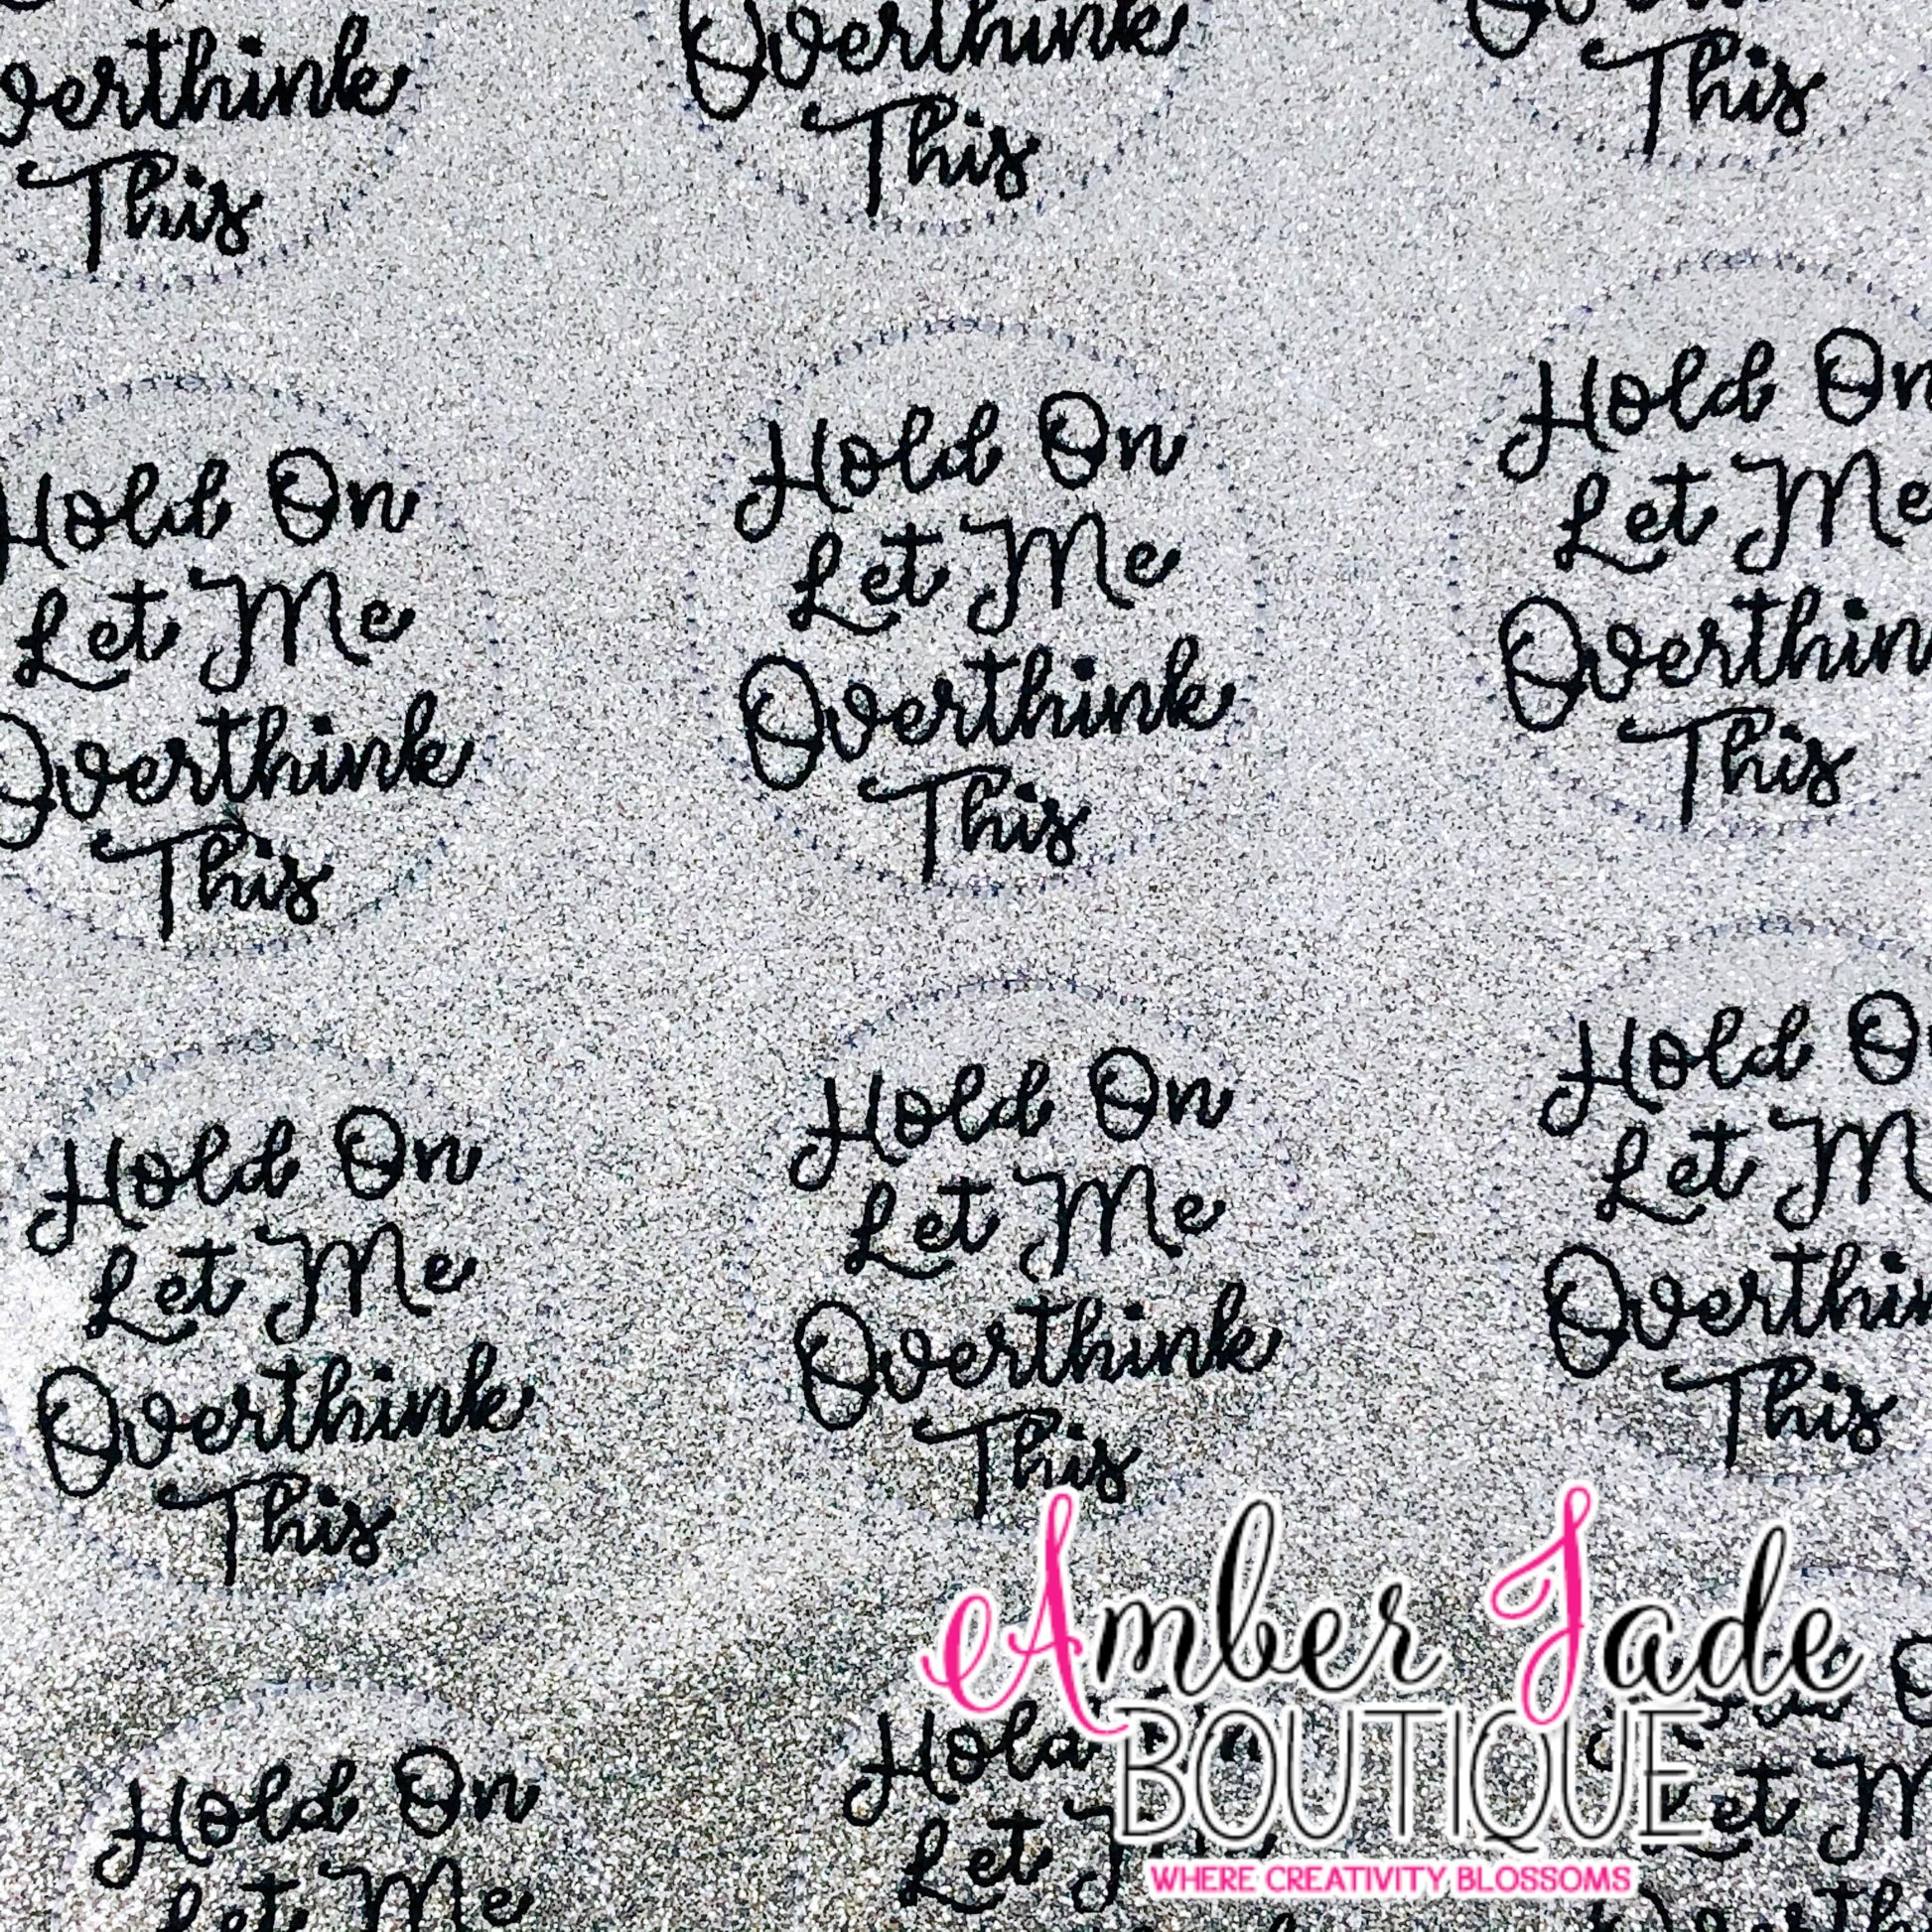 Overthink
This
Overthink
This
This
Hold On
Let Me
Overthink
This
Hold On
Let Me
Overthink
This
Hold On
Let Me
Overthin
This
Hold On
Let Me
Overthink
This
Hold On
Let Me
Overthink
This
Hold O
Let M
Overthi
This
Hold On
Let Me
Hold
Let
Let M
Amber Jade
BOUTIQUE
WHERE CREATIVITY BLOSSOMS